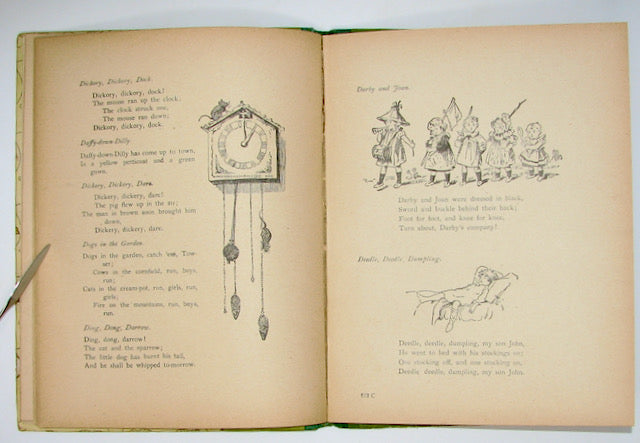 Dickory, Dickory, Dock.
Dickory, dickory, dock!
The mouse ran up the clock;
The clock struck one,
The mouse ran down;
Dickory, dickory, dock.
Daffy-down-Dilly
Daffy-down-Dilly has come up to town,
In a yellow petticoat and a green
gown.
Dickery, Dickery, Dare.
Dickery, dickery, dare!
The pig flew up in the air;
The man in brown soon brought him
down,
Dickery, dickery, dare.
Dogs in the Garden.
Dogs in the garden, catch 'em, Tow-
ser;
Cows in the cornfield, run, boys,
run;
Cats in the cream-pot, run, girls, run,
girls;
Fire on the mountains, run, boys,
run.
Ding, Dong, Darrow.
Ding, dong, darrow!
The cat and the sparrow;
The little dog has burnt his tail,
And he shall be whipped to-morrow.
Darby and Joan.
Darby and Joan were dressed in black,
Sword and buckle behind their back;
Foot for foot, and knee for knee,
Turn about, Darby's company!
Deedle, Deedle, Dumpling.
Deedle, deedle, dumpling, my son John,
He went to bed with his stockings on;
One stocking off, and one stocking on,
Deedle, deedle, dumpling, my son John.